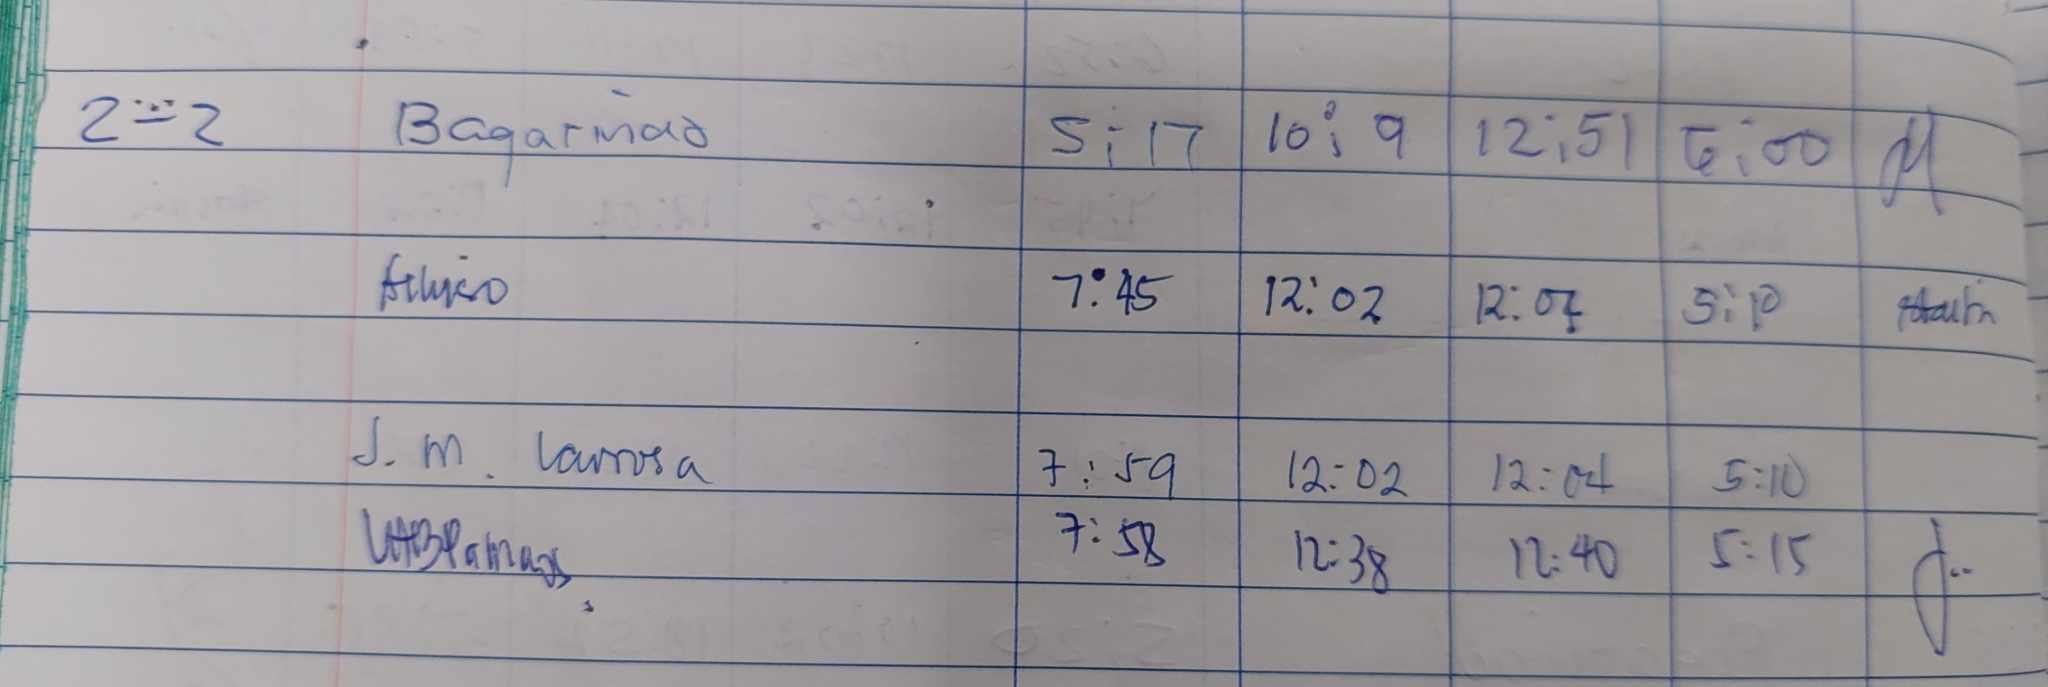 2-2 Bagarinao 5:17 10:9 12:51 5:00
7:45 12:02 12:04 5:10
J. M. Larrosa 7:59 12:02 12:04 5:10
7:58 12:38 12:40 5:15